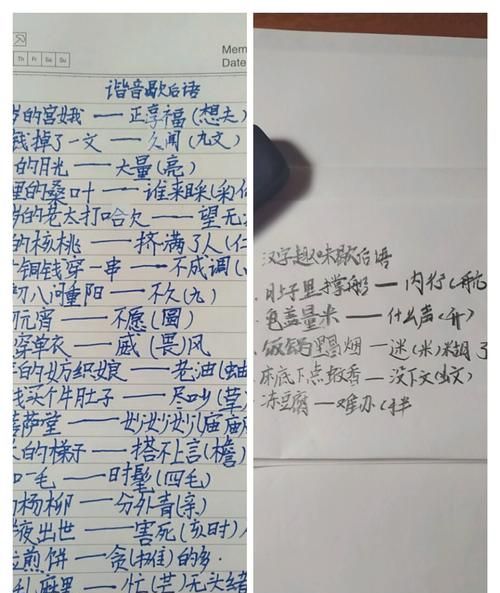 Mem
Date
Th Fr Sa Su
谐音歇后语
岁的宫娥——正享福(想夫)
钱掉了一文——久闻(九文)
的月光——大量(亮)
里的桑叶——谁来睬(采
岁的老太打哈欠——望无
的杨桃——挤满了人(仁
铜钱穿一串——不成调(
初八问重阳——不久(九)
元宵——不愿(圆)
穿单衣——威(畏)风
的纺织娘——老油(蚰
钱买个牛肚子——尽吵(草)
菩萨堂——妙妙妙(庙庙
的梯子——搭不上言(檐)
一毛——时髦(四毛)
杨柳——分外青(亲)
夜出世——害死(亥时)
煎饼——贪(摊)的多
乱麻里——忙(芒)无头绪
汉字趣味歇后语
肚子里撑船——内行(航
电盖量米——什么声(升)
饭锅冒烟——迷(米)糊了
床底下点蚊香——没下文(蚊)
冻豆腐——难办(拌